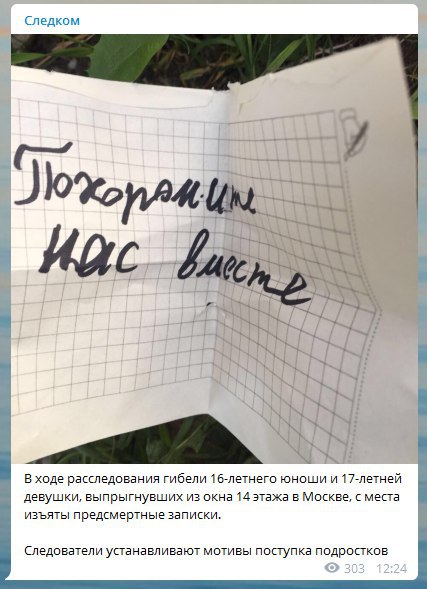 Следком
Похороните
нас вместе
В ходе расследования гибели 16-летнего юноши и 17-летней
девушки, выпрыгнувших из окна 14 этажа в Москве, с места
изъяты предсмертные записки.
Следователи устанавливают мотивы поступка подростков
303 12:24